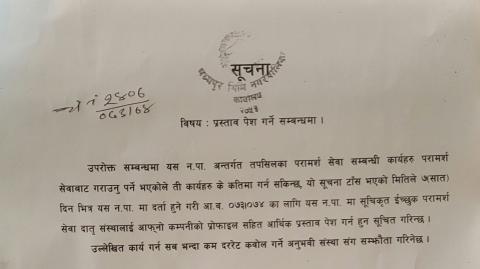 सूचना
मध्यपुर थिमि नगरपालिका
कार्यालय
२०५३
च नं २४०६
०७३।७४
विषय : प्रस्ताव पेश गर्ने सम्बन्धमा ।
उपरोक्त सम्बन्धमा यस न.पा. अन्तर्गत तपसिलका परामर्श सेवा सम्बन्धी कार्यहरु परामर्श
सेवाबाट गराउनु पर्ने भएकोले ती कार्यहरु के कतिमा गर्न सकिन्छ, यो सूचना टाँस भएको मितिले ७(सात)
दिन भित्र यस न.पा. मा दर्ता हुने गरी आ.व. ०७३।०७४ का लागि यस न.पा. मा सूचिकृत ईच्छुक परामर्श
सेवा दातृ संस्थालाई आफ्नो कम्पनीको प्रोफाइल सहित आर्थिक प्रस्ताव पेश गर्न हुन सूचित गरिन्छ ।
उल्लेखित कार्य गर्न सब भन्दा कम दररेट कबोल गर्ने अनुभवी संस्था संग सम्झौता गरिनेछ ।